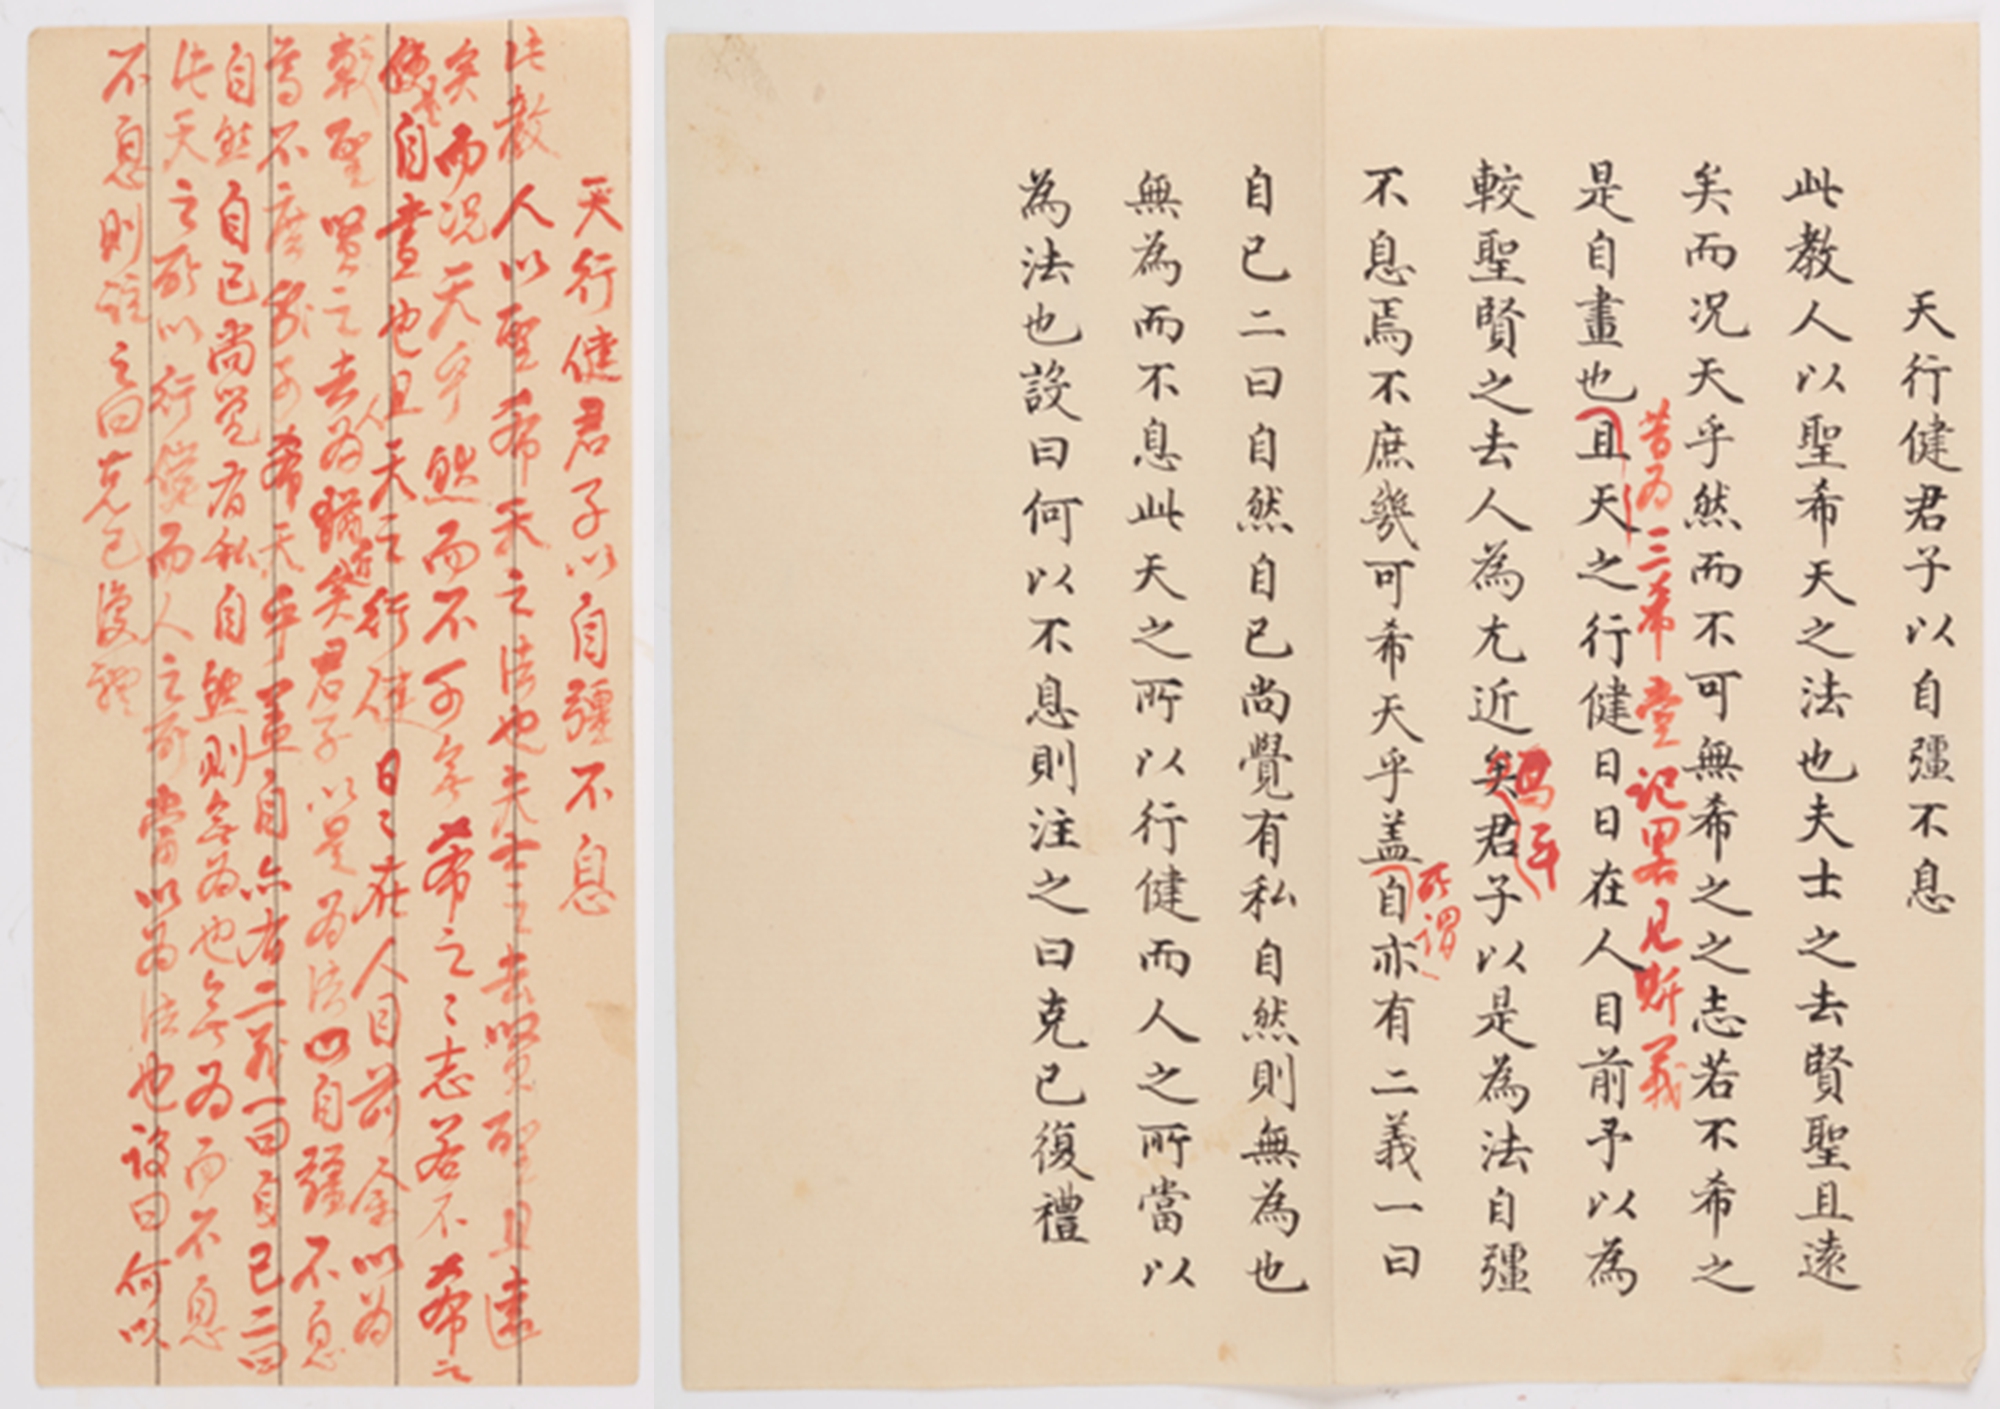 天行健君子以自彊不息
此教人以聖希天之法也夫士之去賢聖且遠
矣而况天乎然而不可無希之之志若不希之
昔为三希堂记畧見斯義
是自畫也且天之行健日日在人目前予以為
較聖賢之去人為尤近矣君子以是為法自彊
焉耳
不息焉不庶幾可希天乎盖自亦有二義一曰
所谓
自己二曰自然自己尚覺有私自然則無為也
無為而不息此天之所以行健而人之所當以
為法也設曰何以不息則注之曰克己復禮
天行健君子以自彊不息
此教人以聖希天之法也夫士之去賢聖且遠
矣而况天乎然而不可無希之〻志若不希之
是自畫也且天之行健日〻在人目前余以为
較聖賢之去人为尤近矣君子以是为法自彊不息
焉不庶幾可希天乎蓋自亦有二義一曰自己二曰
自然自己尚覺有私自然則無为也無为而不息
此天之所以行健而人之所當以为法也設曰何以
不息則註之曰克己復禮